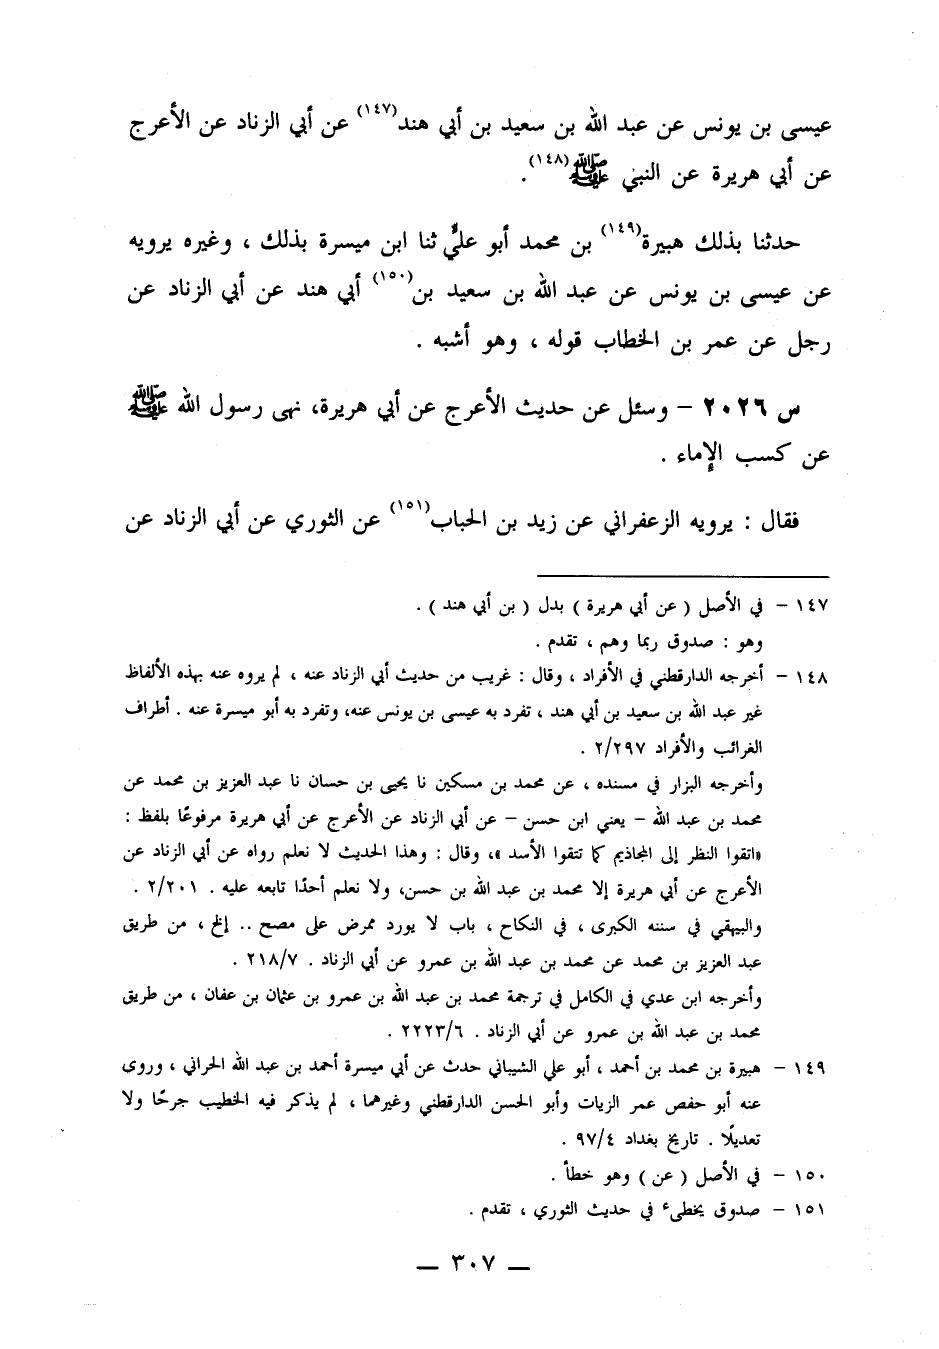 عيسى بن يونس عن عبد الله بن سعيد بن أبي هند(١٤٧) عن أبي الزناد عن الأعرج
عن أبي هريرة عن النبي ﷺ(١٤٨).
حدثنا بذلك هبيرة(١٤٩) بن محمد أبو عليٍّ ثنا ابن ميسرة بذلك ، وغيره يرويه
عن عيسى بن يونس عن عبد الله بن سعيد بن(١٥٠) أبي هند عن أبي الزناد عن
رجل عن عمر بن الخطاب قوله ، وهو أشبه .
س ٢٠٢٦ – وسئل عن حديث الأعرج عن أبي هريرة، نهى رسول الله ﷺ
عن كسب الإماء .
فقال : يرويه الزعفراني عن زيد بن الحباب(١٥١) عن الثوري عن أبي الزناد عن
١٤٧ – في الأصل ( عن أبي هريرة ) بدل ( بن أبي هند ) .
وهو : صدوق ربما وهم ، تقدم .
١٤٨ – أخرجه الدارقطني في الأفراد ، وقال : غريب من حديث أبي الزناد عنه ، لم يروه عنه بهذه الألفاظ
غير عبد الله بن سعيد بن أبي هند ، تفرد به عيسى بن يونس عنه، وتفرد به أبو ميسرة عنه . أطراف
الغرائب والأفراد ٢/٢٩٧ .
وأخرجه البزار في مسنده ، عن محمد بن مسكين نا يحيى بن حسان نا عبد العزيز بن محمد عن
محمد بن عبد الله – يعني ابن حسن – عن أبي الزناد عن الأعرج عن أبي هريرة مرفوعًا بلفظ :
«اتقوا النظر إلى المجاذيم كما تتقوا الأسد »، وقال : وهذا الحديث لا نعلم رواه عن أبي الزناد عن
الأعرج عن أبي هريرة إلا محمد بن عبد الله بن حسن، ولا نعلم أحدًا تابعه عليه . ٢/٢٠١ .
والبيهقي في سننه الكبرى ، في النكاح ، باب لا يورد ممرض على مصح .. إلخ ، من طريق
عبد العزيز بن محمد عن محمد بن عبد الله بن عمرو عن أبي الزناد . ٢١٨/٧ .
وأخرجه ابن عدي في الكامل في ترجمة محمد بن عبد الله بن عمرو بن عثمان بن عفان ، من طريق
محمد بن عبد الله بن عمرو عن أبي الزناد . ٢٢٢٣/٦ .
١٤٩ – هبيرة بن محمد بن أحمد ، أبو علي الشيباني حدث عن أبي ميسرة أحمد بن عبد الله الحراني ، وروى
عنه أبو حفص عمر الزيات وأبو الحسن الدارقطني وغيرهما ، لم يذكر فيه الخطيب جرحًا ولا
تعديلًا . تاريخ بغداد ٩٧/٤ .
١٥٠ – في الأصل ( عن ) وهو خطأ .
١٥١ – صدوق يخطىء في حديث الثوري ، تقدم .
— ٣٠٧ —